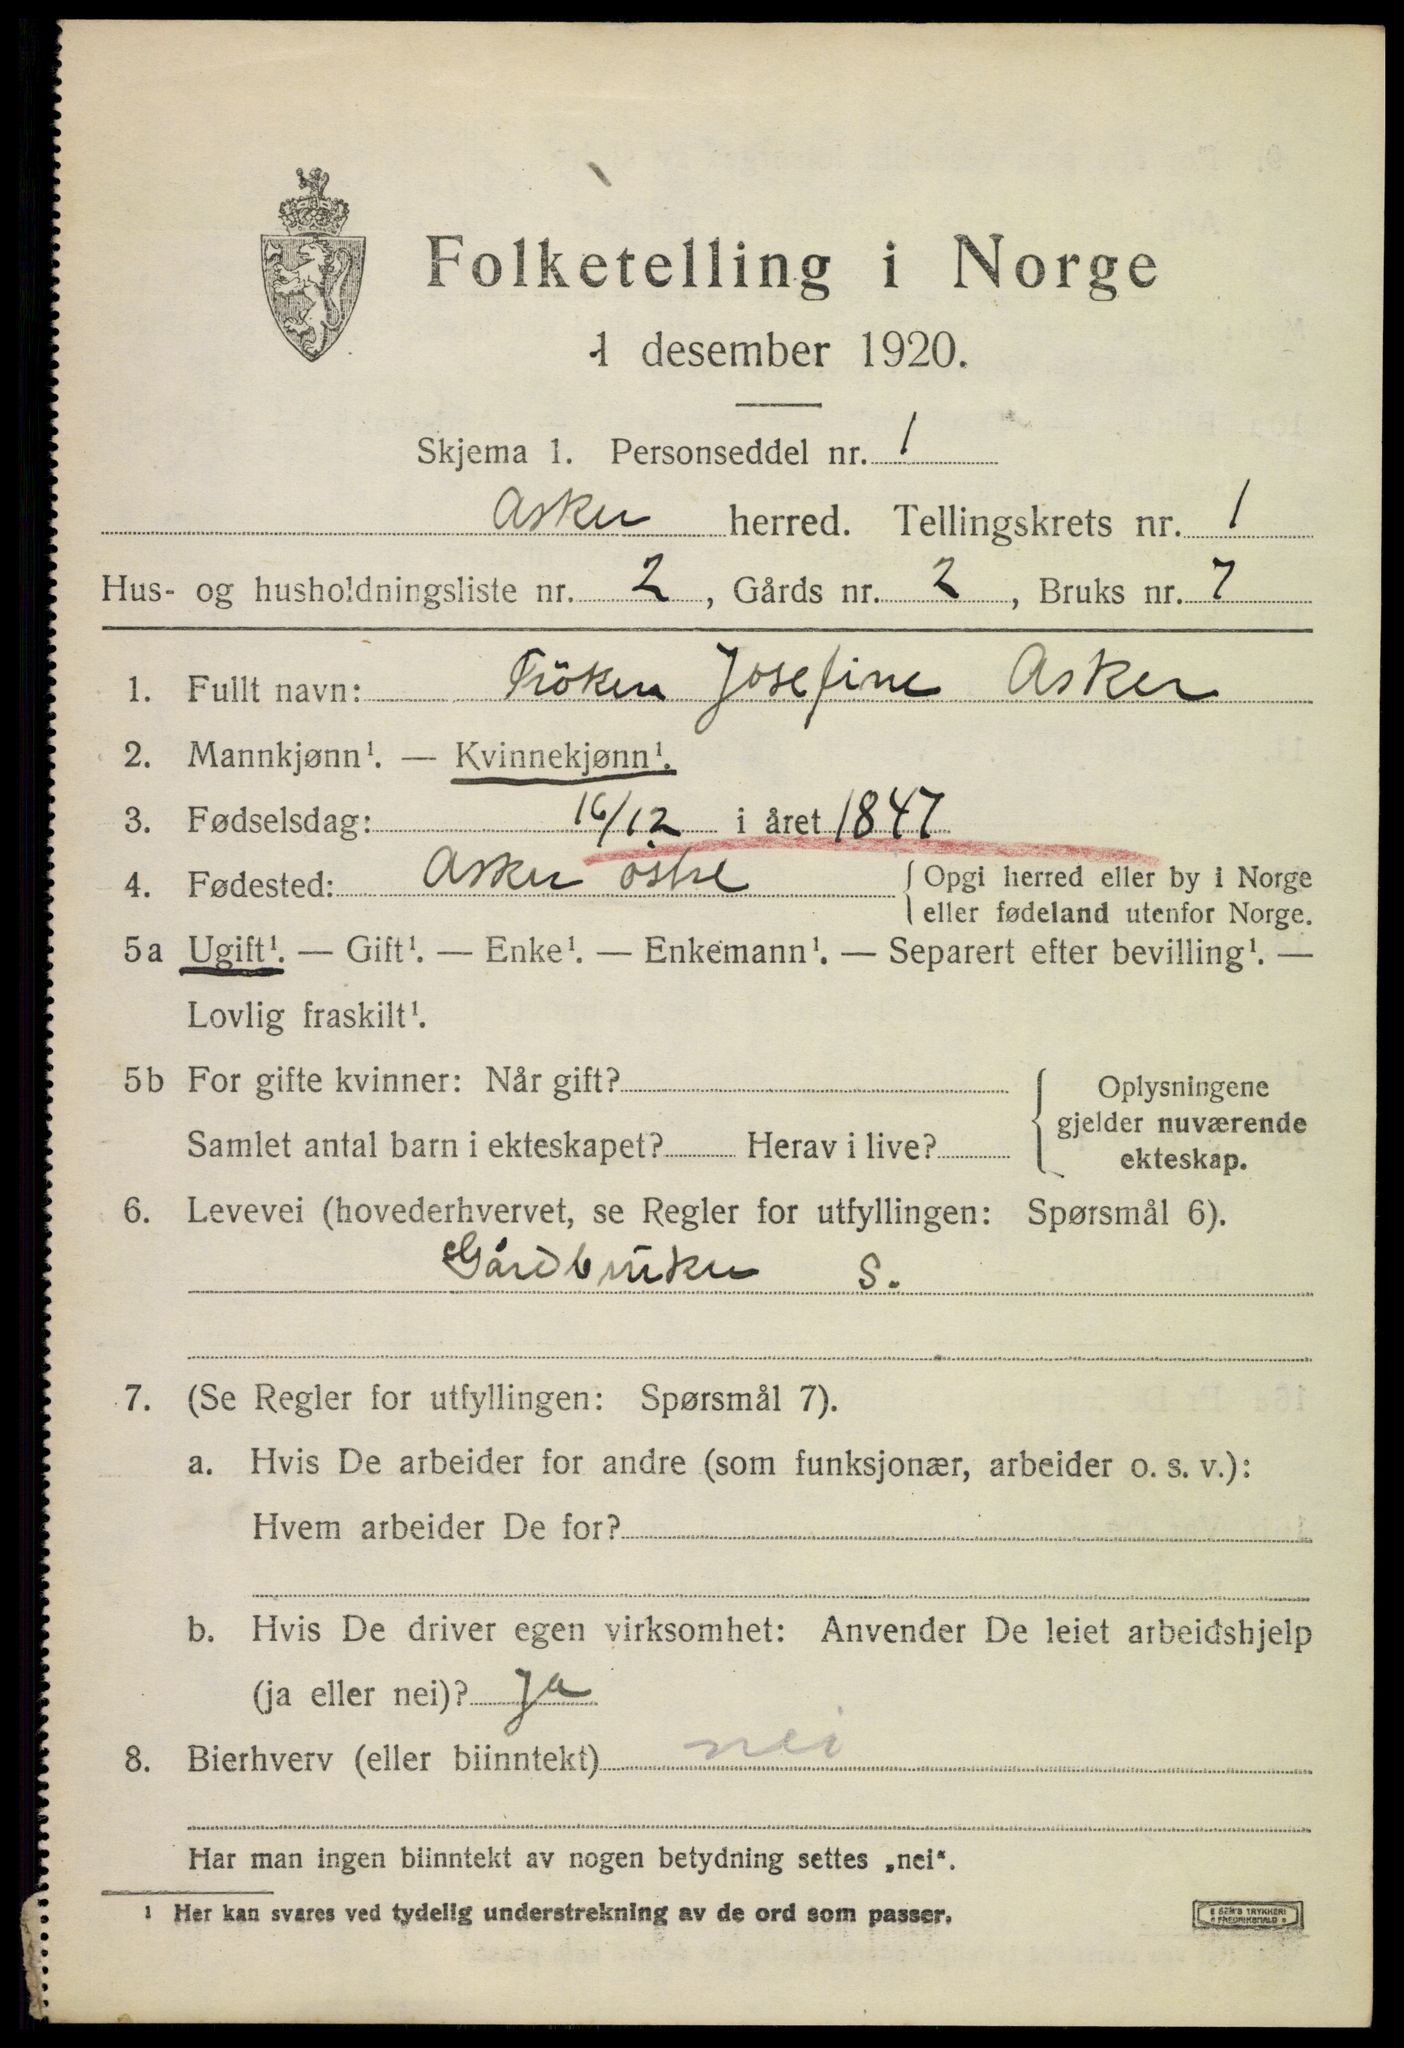 Folketelling i Norge
1 desember 1920.
Skjema 1. Personseddel nr. 1
Asker herred. Tellingskrets nr. 1
Hus- og husholdningsliste nr. 2, Gårds nr. 2, Bruks nr. 7
1. Fullt navn: Fröken Josefine Asker
2. Mannkjønn¹. — Kvinnekjønn¹.
3. Fødselsdag: 16/12 i året 1847
4. Fødested: Asker östre {Opgi herred eller by i Norge
eller fødeland utenfor Norge.
5a Ugift¹. — Gift¹. — Enke¹. — Enkemann¹. — Separert efter bevilling¹. —
Lovlig fraskilt¹.
5b For gifte kvinner: Når gift? { Oplysningene
gjelder nuværende
Samlet antal barn i ekteskapet? Herav i live?
ekteskap.
6. Levevei (hovederhvervet, se Regler for utfyllingen: Spørsmål 6).
Gårdbruker S.
7. (Se Regler for utfyllingen: Spørsmål 7).
a. Hvis De arbeider for andre (som funksjonær, arbeider o. s. v.):
Hvem arbeider De for?
b. Hvis De driver egen virksomhet: Anvender De leiet arbeidshjelp
(ja eller nei)? Ja
8. Bierhverv (eller biinntekt) nei
Har man ingen biinntekt av nogen betydning settes „nei“.
¹ Her kan svares ved tydelig understrekning av de ord som passer.
SEM'S TRYKKERI
FREDRIKSHALD